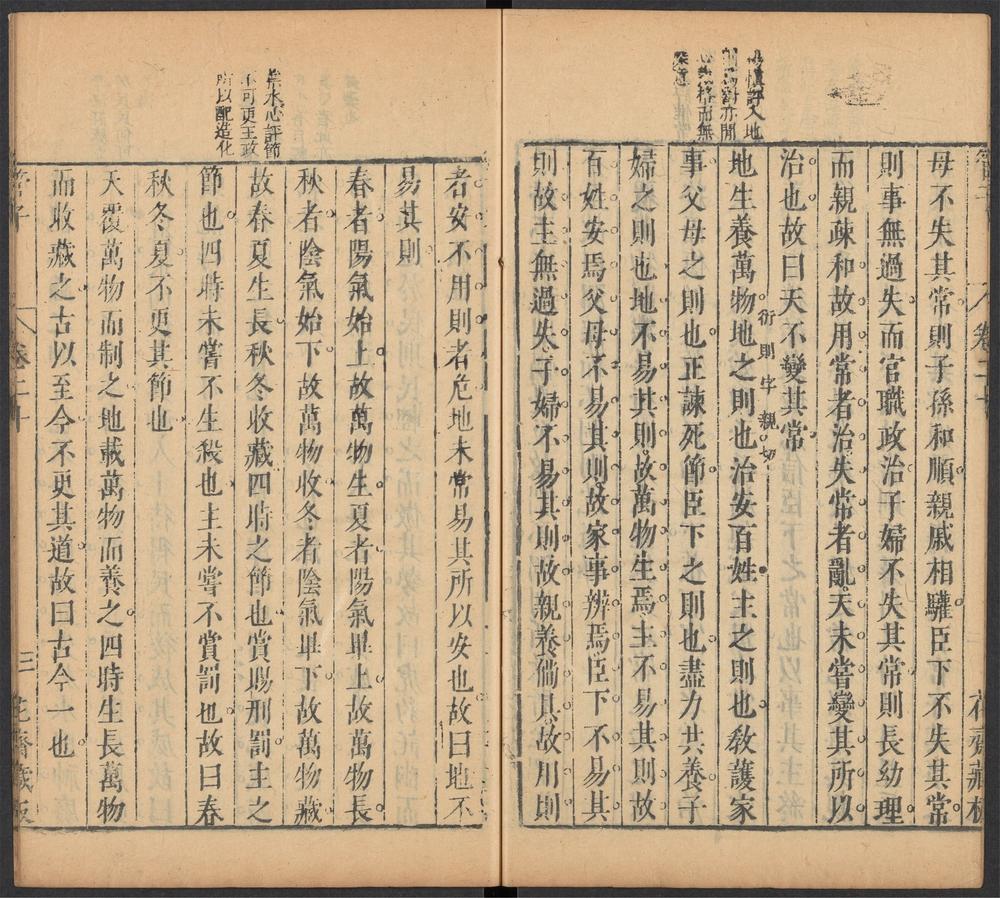 母不失其常則子孫和順親戚相驩臣下不失其常
則事無過失而官職政治子婦不失其常則長幼理
而親疎和故用常者治失常者亂天未嘗變其所以
治也故曰天不變其常
地生養萬物地之則也治安百姓主之則也教護家
衍則字親切
事父母之則也正諫死節臣下之則也盡力共養子
婦之則也地不易其則故萬物生焉主不易其則故
百姓安焉父母不易其則故家事辨焉臣下不易其
則故主無過失子婦不易其則故親養僃具故用則
者安不用則者危地未常易其所以安也故曰地不
易其則
春者陽氣始上故萬物生夏者陽氣畢上故萬物長
秋者陰氣始下故萬物收冬者陰氣畢下故萬物藏
故春夏生長秋冬收藏四時之節也賞賜刑罰主之
節也四時未嘗不生殺也主未嘗不賞罰也故曰春
秋冬夏不更其節也
天覆萬物而制之地載萬物而養之四時生長萬物
而收藏之古以至今不更其道故曰古今一也
水心評節
不可更王政
所以配造化
管子
卷二十
三
花齋藏板